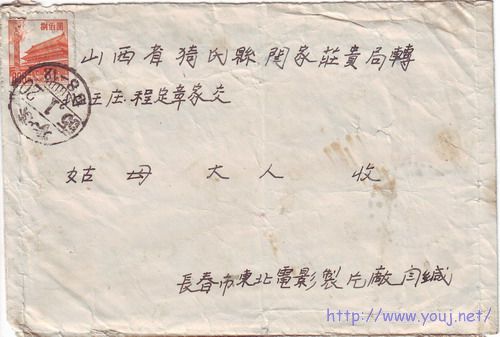 捌佰圓
山西省猗氏縣閻家莊貴局轉
王庄.程定章家交
姑母大人收
長春市東北電影製片廠閆緘
http://www.youj.net/